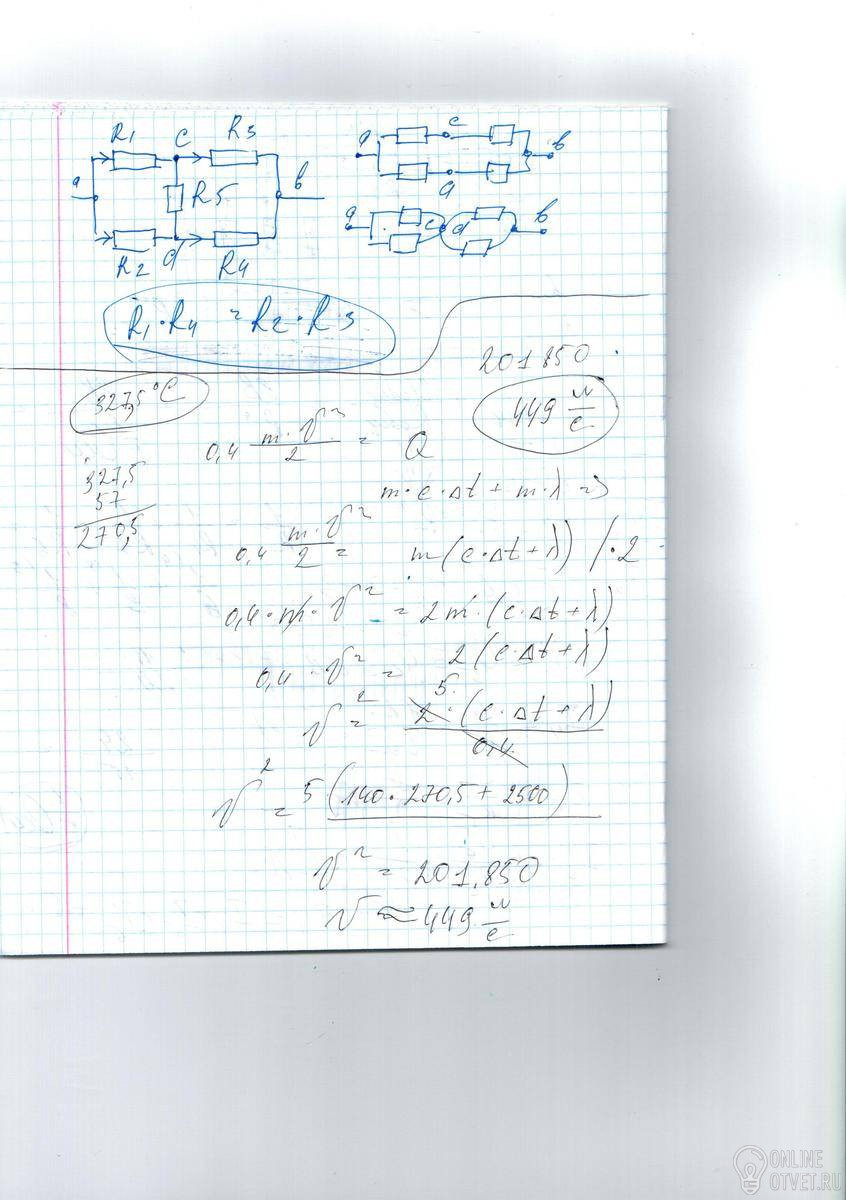 R1 C R3
a R5 b
R2 d R4
a c b
d
a c d b
R1·R4 = R2·R3
327,5°C
201850
449 м/с
0,4 m·v²/2 = Q
327,5
57
270,5
m·c·Δt + m·λ =>
0,4 m·v²/2 = m(c·Δt+λ) /·2
0,4·m·v² = 2m·(c·Δt+λ)
0,4·v² = 2(c·Δt+λ)
v² = 5 2·(c·Δt+λ)/0,4
v² = 5(140·270,5+2500)
v² = 201.850
v ≈ 449 м/с
ONLINE
OTVET.RU